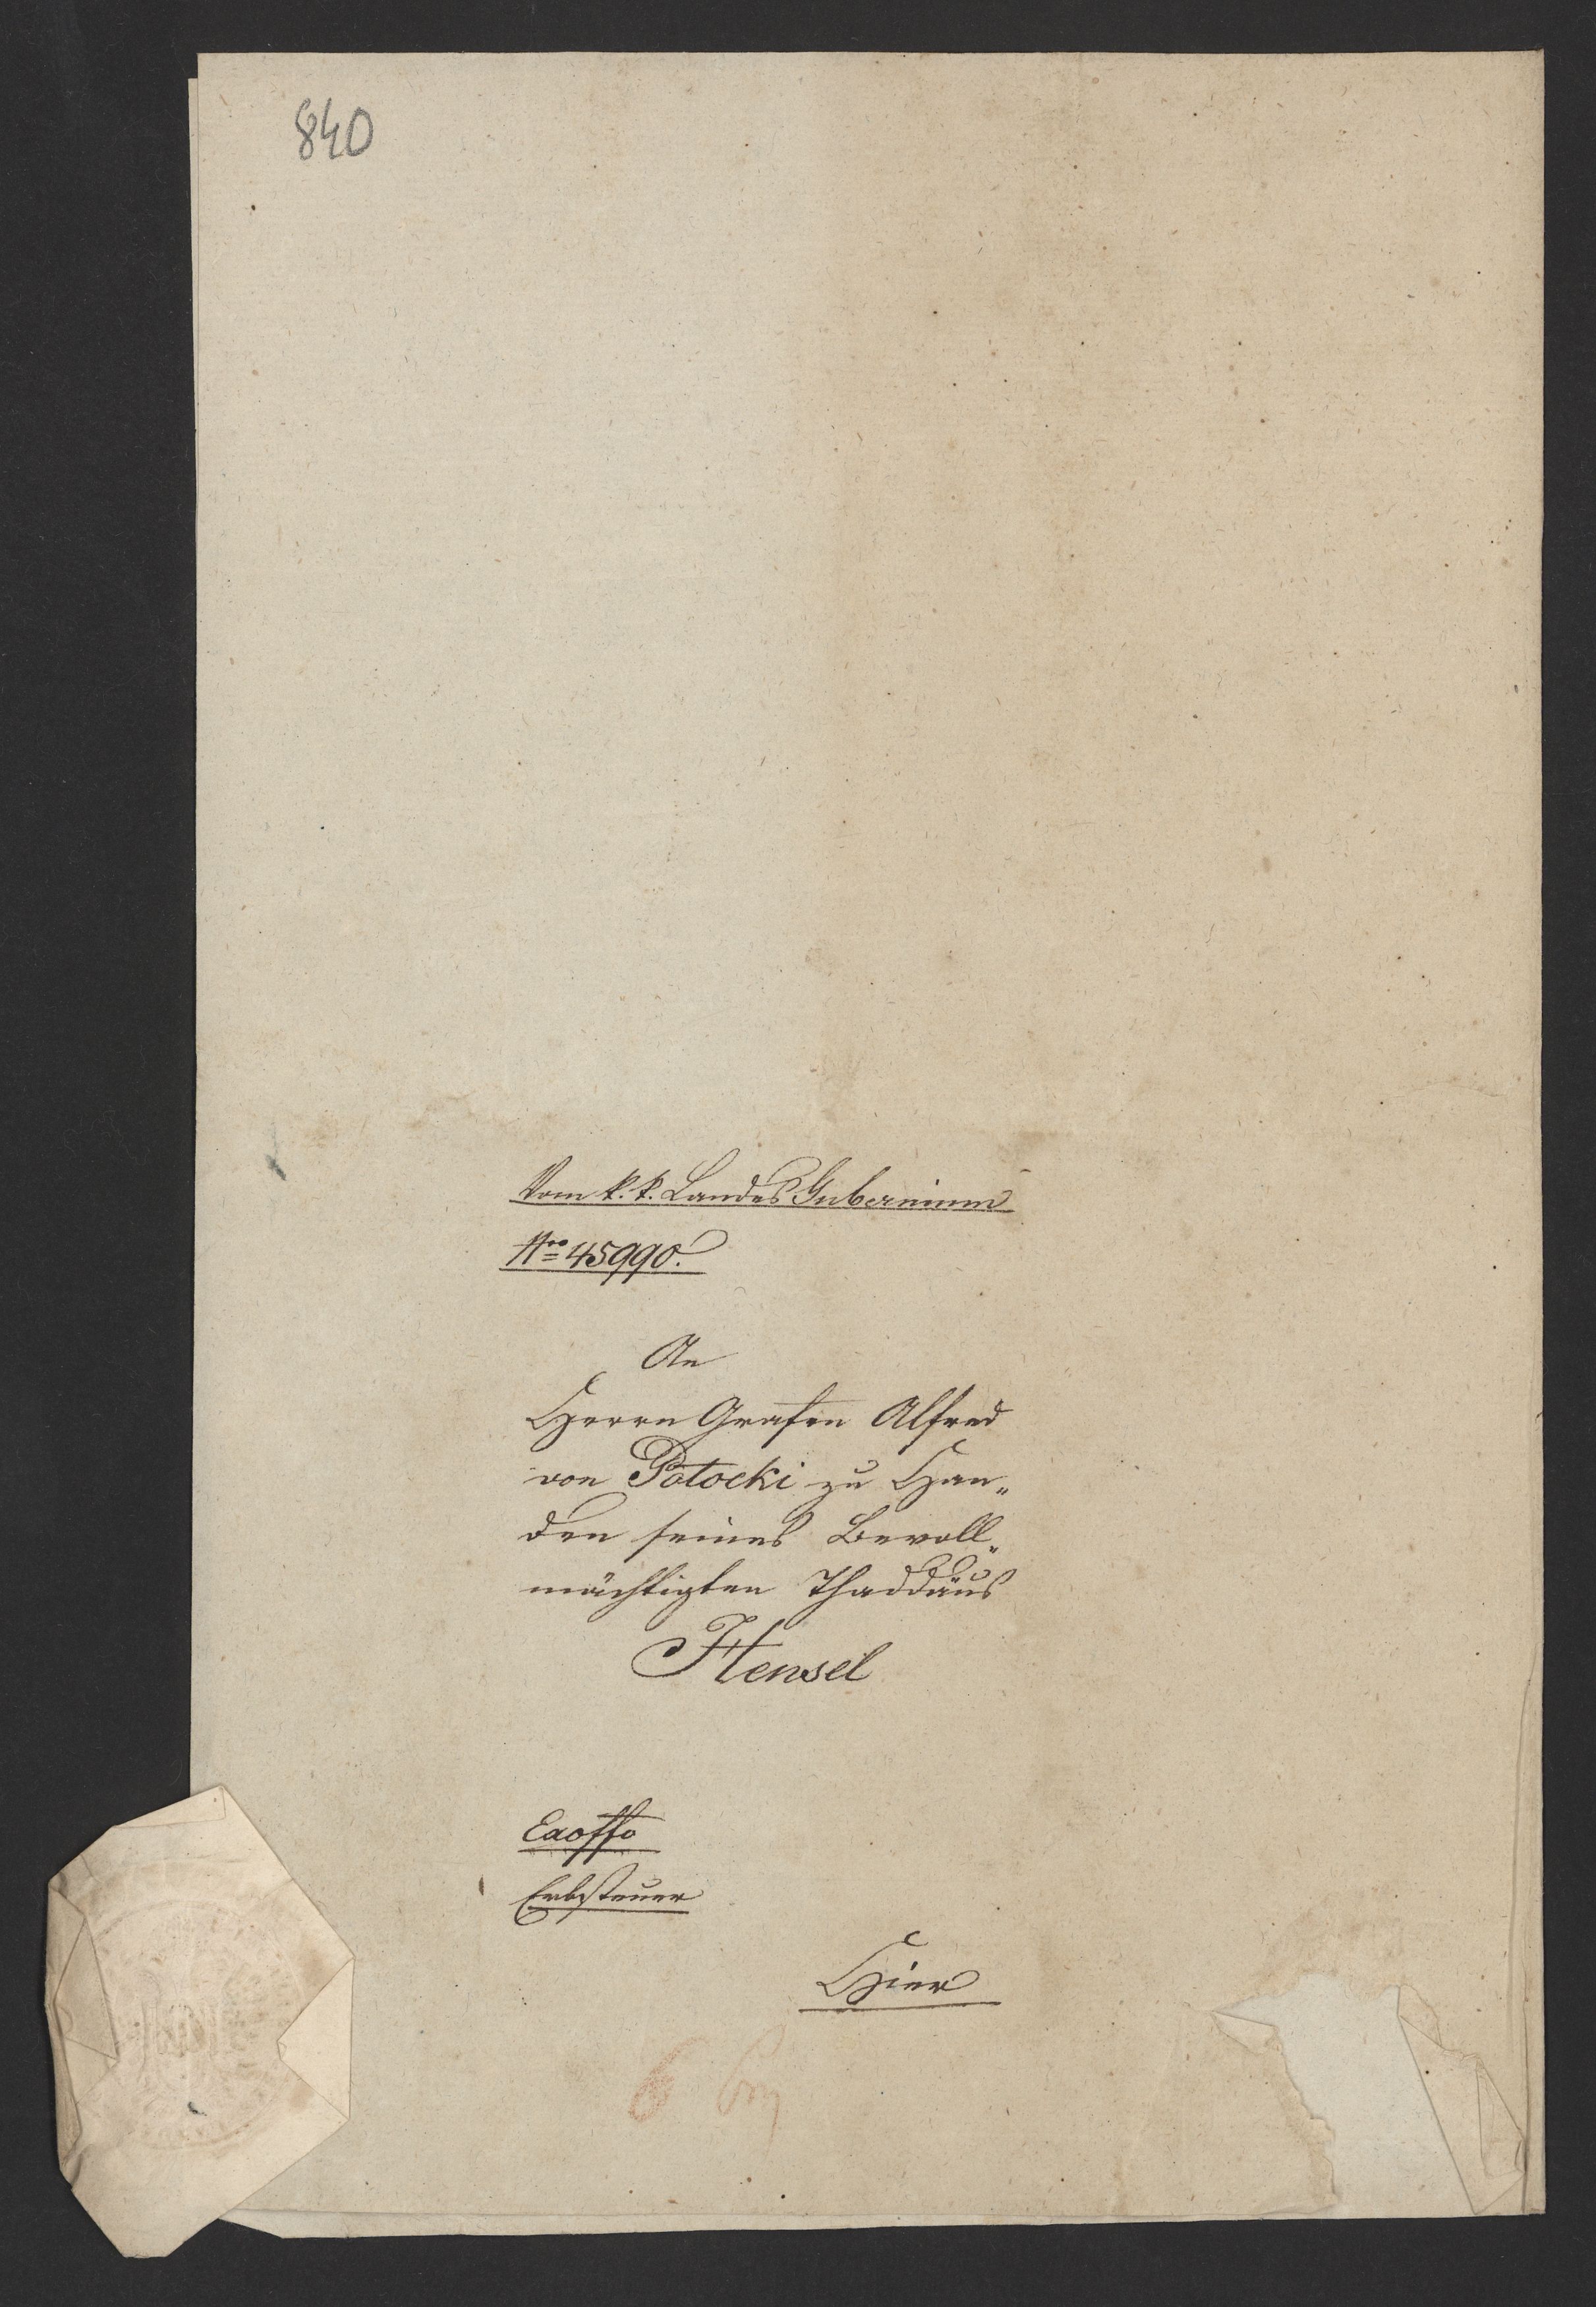 840
Vom k. k. Landes Gubernium
Nro 45990.
An
Herrn Grafen Alfred
von Potocki zu Han„
den seines Bevoll„
mächtigten Thaddäus
Hensel
Exoffo
Erbsteuer
Hier
6